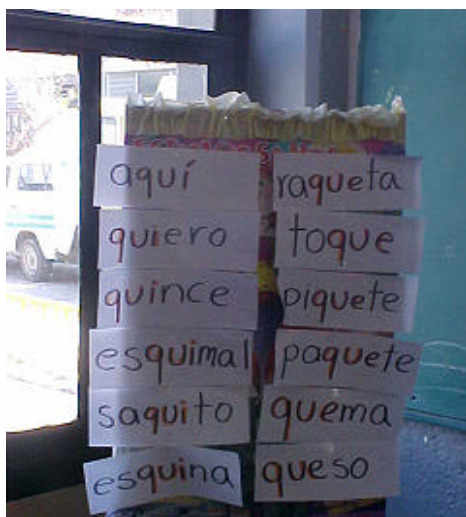 aquí
quiero
quince
esquimal
saquito
esquina
raqueta
toque
piquete
paquete
quema
queso